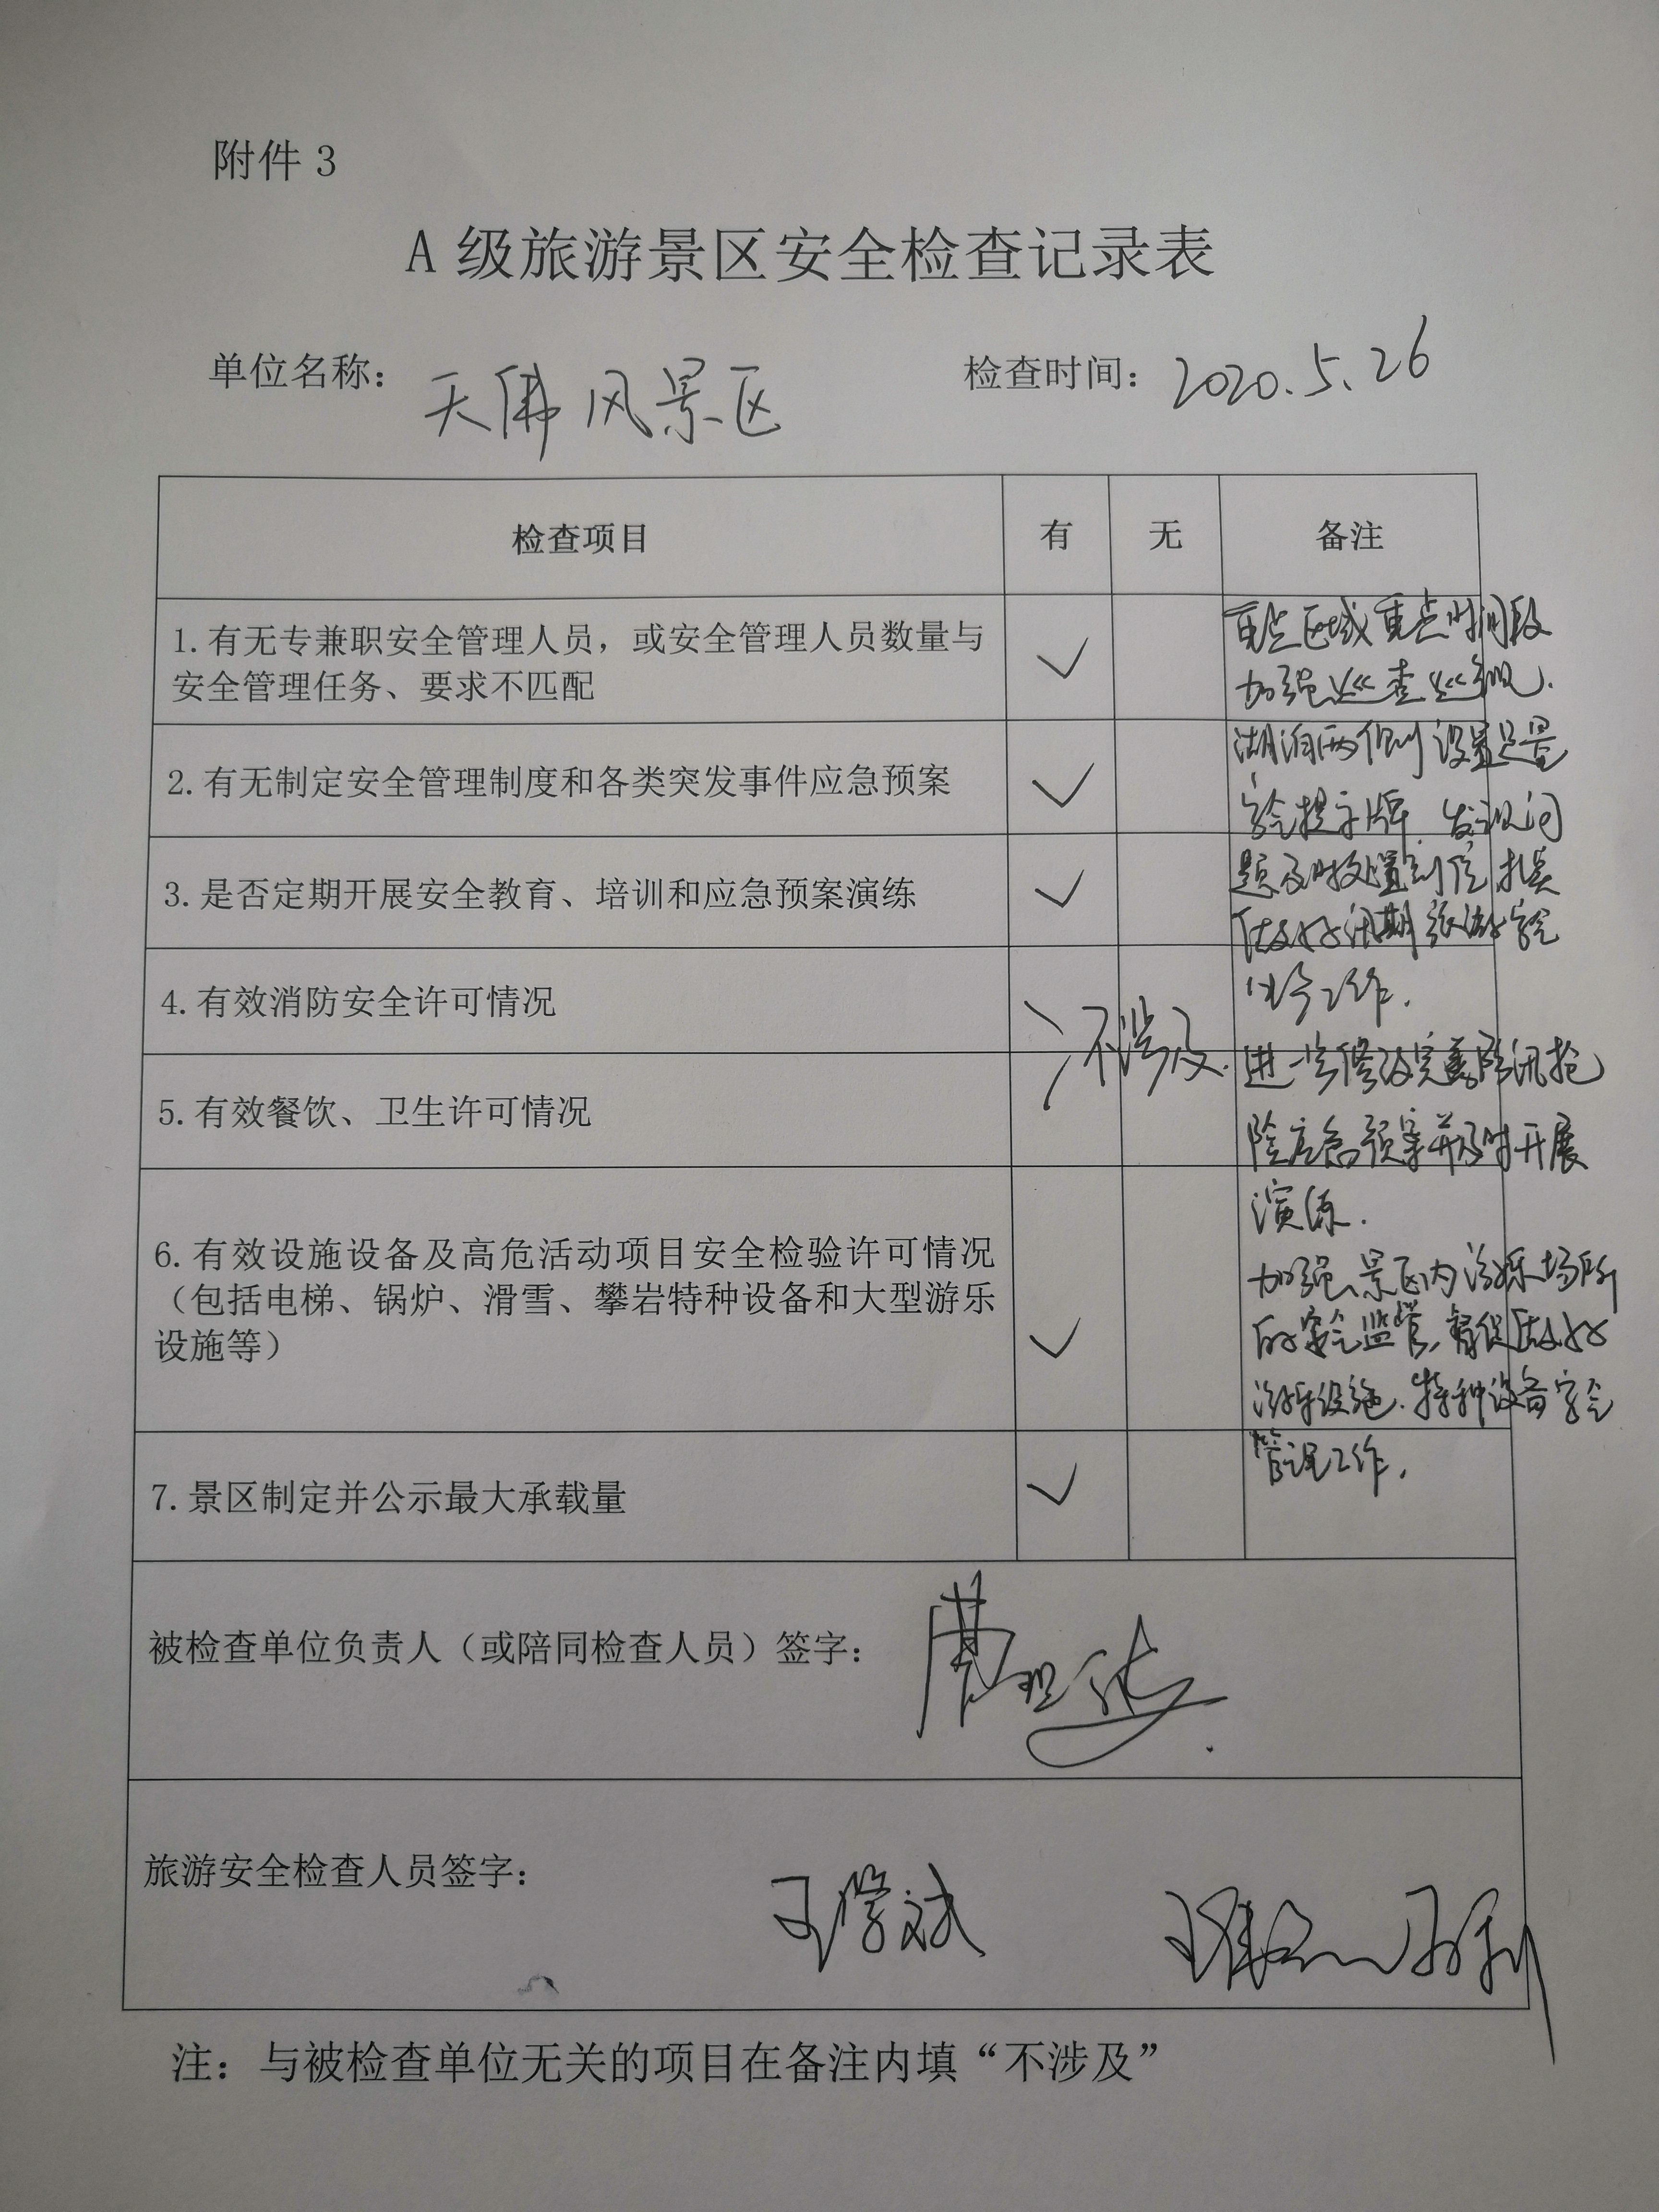 附件 3
A 级旅游景区安全检查记录表
单位名称： 天佛风景区 检查时间： 2020.5.26
检查项目 有 无 备注
1. 有无专兼职安全管理人员，或安全管理人员数量与
安全管理任务、要求不匹配
✓
2. 有无制定安全管理制度和各类突发事件应急预案 ✓
3. 是否定期开展安全教育、培训和应急预案演练 ✓
4. 有效消防安全许可情况
不涉及.
5. 有效餐饮、卫生许可情况
6. 有效设施设备及高危活动项目安全检验许可情况
（包括电梯、锅炉、滑雪、攀岩特种设备和大型游乐
设施等）
✓
7. 景区制定并公示最大承载量 ✓
重点区域重点时间段
加强巡查巡视.
湖泊两侧设置足量
安全提示牌. 发现问
题及时处置到位
做好汛期旅游安全
工作.
进一步修改完善防汛抢
险应急预案并及时开展
演练.
加强景区内游乐场所
的安全监管, 督促做好
游乐设施.特种设备安全
管理工作.
被检查单位负责人（或陪同检查人员）签字： 曹
旅游安全检查人员签字： 王学斌
注：与被检查单位无关的项目在备注内填“不涉及”